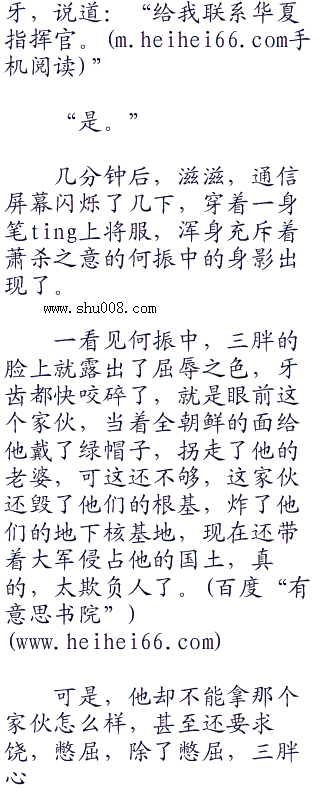 牙，说道：“给我联系华夏
指挥官。(m.heihei66.com手
机阅读)”
“是。”
几分钟后，滋滋，通信
屏幕闪烁了几下，穿着一身
笔ting上将服，浑身充斥着
萧杀之意的何振中的身影出
现了。
www.shu008.com
一看见何振中，三胖的
脸上就露出了屈辱之色，牙
齿都快咬碎了，就是眼前这
个家伙，当着全朝鲜的面给
他戴了绿帽子，拐走了他的
老婆，可这还不够，这家伙
还毁了他们的根基，炸了他
们的地下核基地，现在还带
着大军侵占他的国土，真
的，太欺负人了。(百度“有
意思书院”)
(www.heihei66.com)
可是，他却不能拿那个
家伙怎么样，甚至还要求
饶，憋屈，除了憋屈，三胖
心